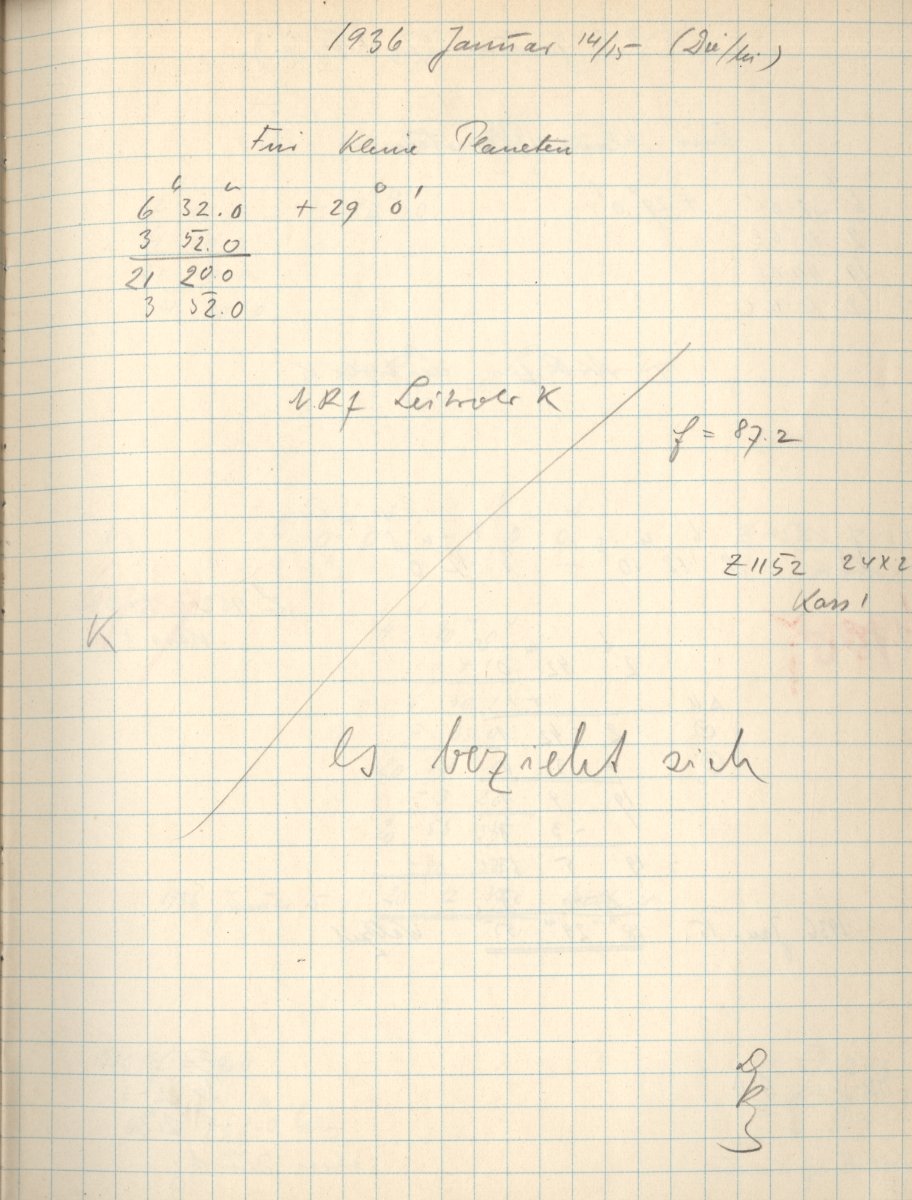 1936 Januar 14/15 (Die/Mi)
Für Kleine Planeten
h m ° '
6 32.0 + 29 0
3 52.0
21 20.0
3 52.0
K
f = 87.2
Z 1152 24x2
Kass 1
K
es bezieht sich